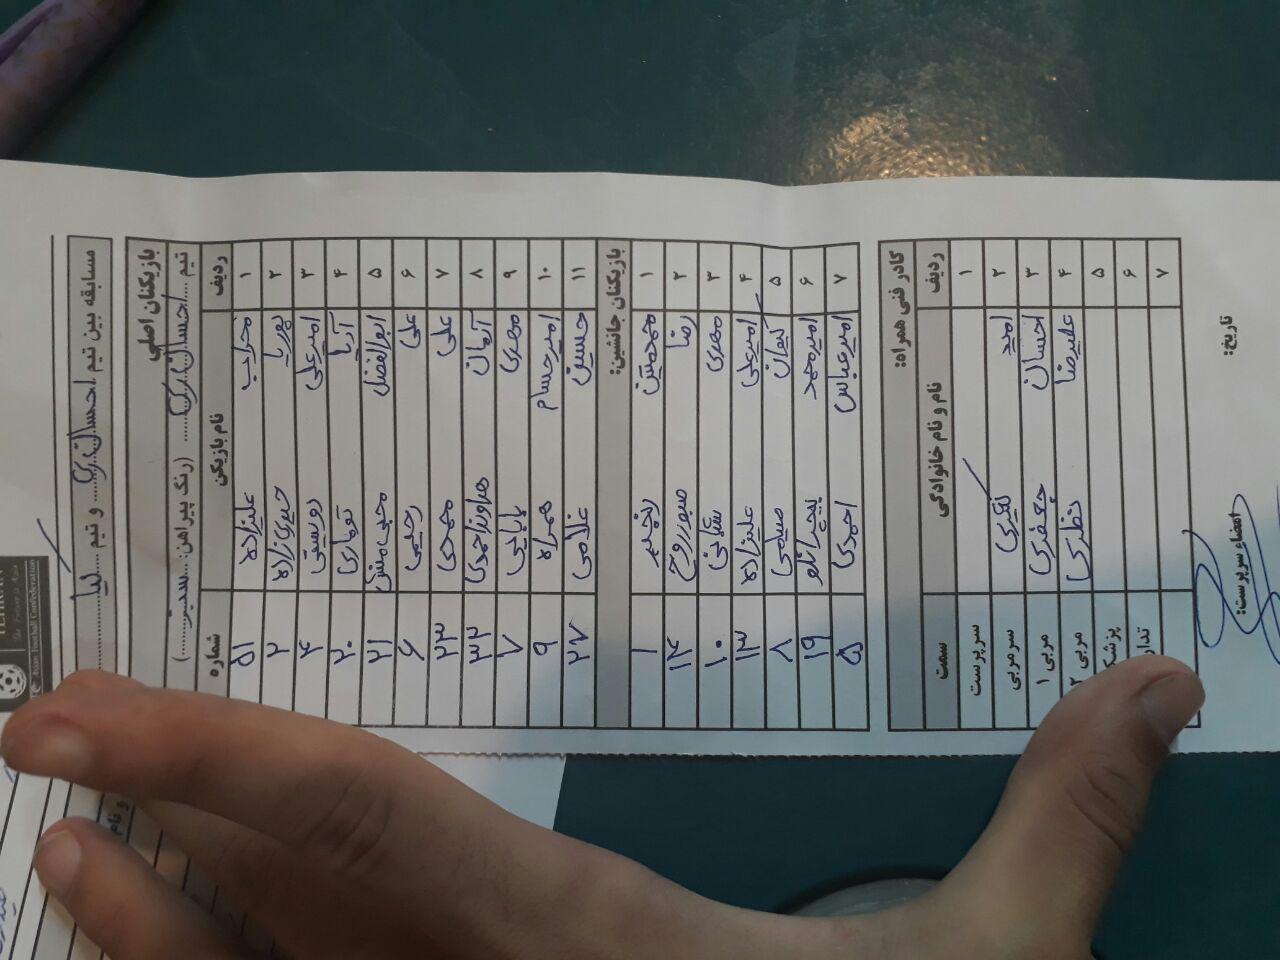 Asian Football Confederation
مسابقه بین تیم احسان ری و تیم سایپا
بازیکنان اصلی
تیم احسان ری (رنگ پیراهن: سبز)
ردیف نام بازیکن شماره
۱ محراب علیزاده ۵۱
۲ پوریا حیدری زاده ۲
۳ امیرعلی دوستی ۴
۴ آریا ۲۰
۵ ابوالفضل محب منش ۲۱
۶ علی رحیمی ۶
۷ علی مهدی ۲۳
۸ آرمان هداوند احمدی ۳۳
۹ مهدی بابایی ۷
۱۰ امیرحسام همراه ۹
۱۱ حسین غلامی ۲۷
بازیکنان جانشین:
۱ محمدمتین رنجبر ۱
۲ رضا صبور روح ۱۴
۳ مهدی ۱۰
۴ امیرعلی علیزاده ۱۳
۵ کیان مسیبی ۸
۶ امیرمحمد ۱۹
۷ امیرعباس احمدی ۵
کادر فنی همراه:
ردیف نام و نام خانوادگی سمت
۱ سرپرست
۲ امید سرمربی
۳ احسان جعفری مربی ۱
۴ علیرضا نظری مربی ۲
۵
۶
۷
تاریخ: امضاء سرپرست: